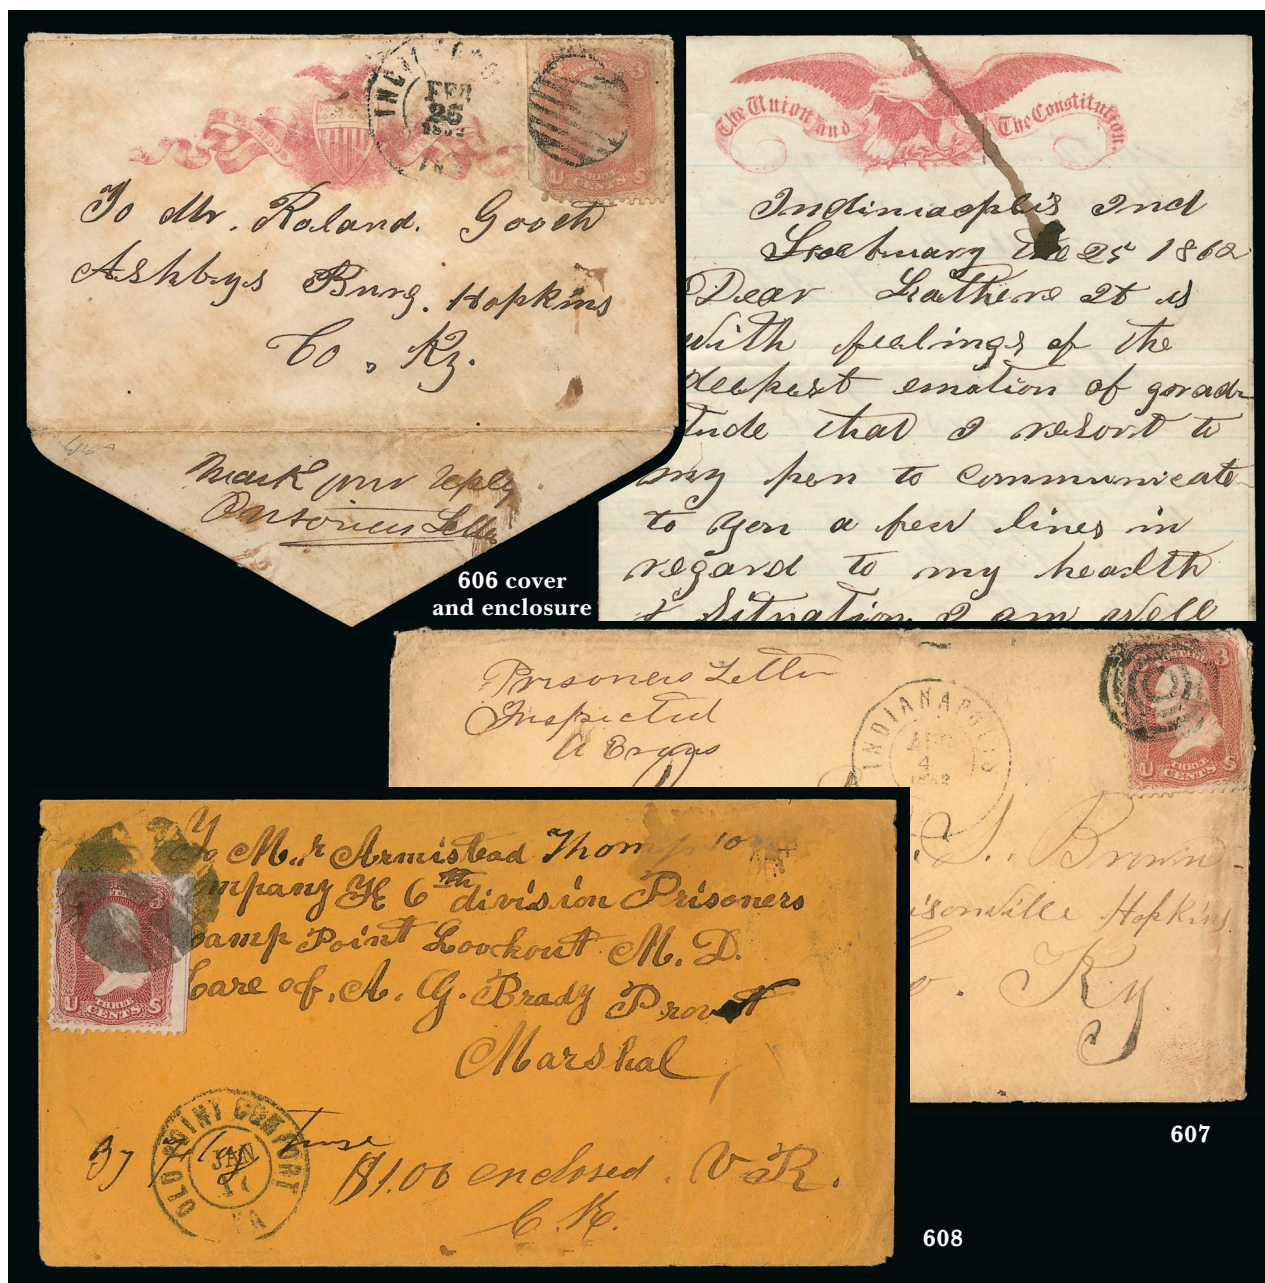 INDI
FEB
25
1862
3
U THREE CENTS S
To Mr. Roland. Gooch
Ashbys Burg. Hopkins
Co. Ky.
Mark your reply
Prisoners Letter
606 cover
and enclosure
The Union and The Constitution
Indinaoplis Ind
the 25 1862
Dear It is
with feelings of the
deepest emotion of gorad-
tude that I resort to
my pen to communicate
to you a few lines in
regard to my health
& Situation I am well
Prisoners Letter
Inspected
A Evans
INDIANAPOLIS
AUG
4
1862
3
U THREE CENTS S
S. Brown
isonville Hopkins
o. Ky
607
To Mr Armistead Thompson
ompany H 6th division Prisoners
camp Point Lookout M. D.
Care of. A. G. Brady Provst
Marshal
3
U THREE CENTS S
OLD POINT COMFORT
JAN
17
VA
By Flag Truse
$1.00 enclosed. V R.
C. K.
608